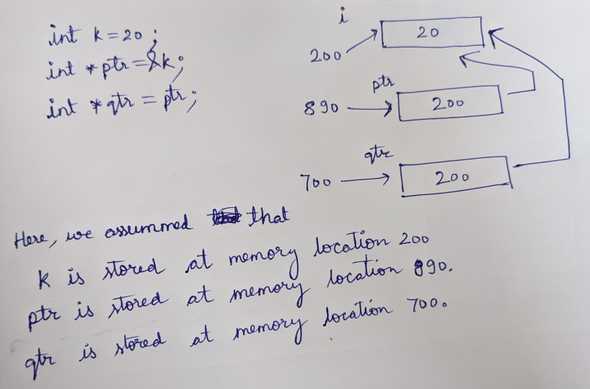 int k = 20 ;
int *ptr = &k;
int *qtr = ptr;
i
20
200
ptr
890
200
qtr
700
200
Here, we assummed that
k is stored at memory location 200
ptr is stored at memory location 890.
qtr is stored at memory location 700.